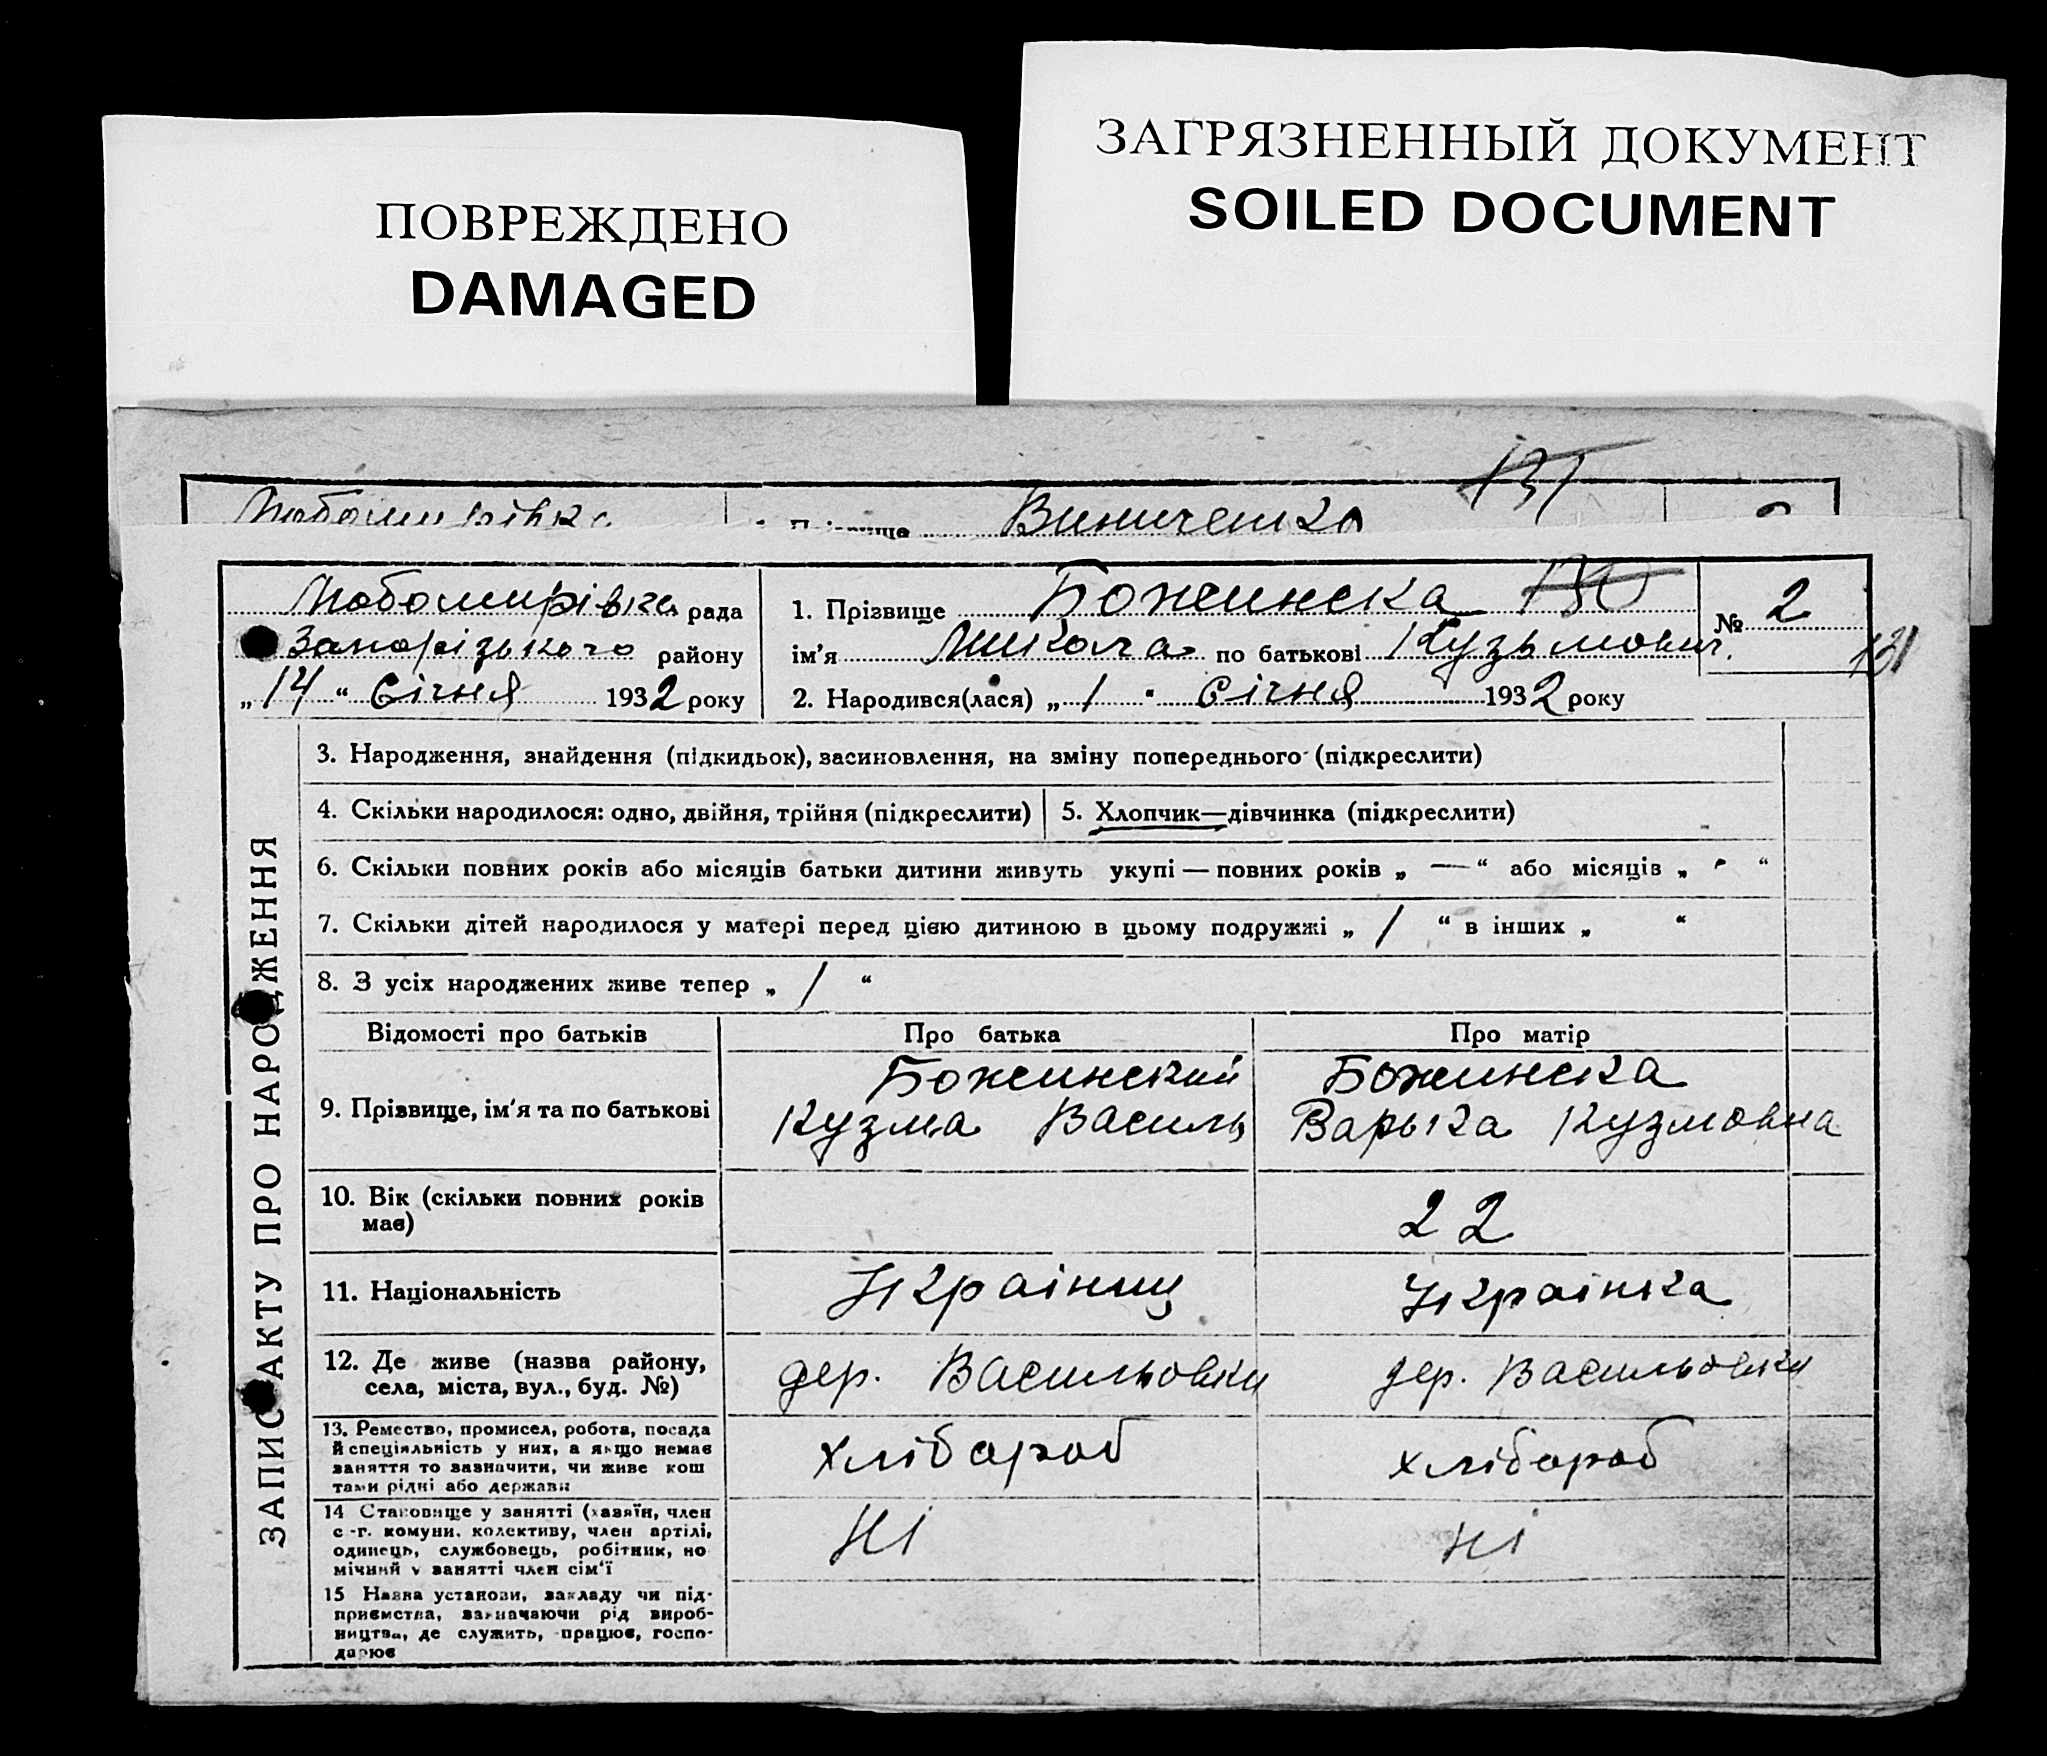 ПОВРЕЖДЕНО
DAMAGED
ЗАГРЯЗНЕННЫЙ ДОКУМЕНТ
SOILED DOCUMENT
131
Любомирівка
Прізвище Виниченко
Любомирівка рада
Запорізького району
„14“ Січня 1932 року
1. Прізвище Божинска 130
ім'я Микола по батькові Кузьмович.
2. Народився(лася) „1“ Січня 1932 року
№ 2
131
ЗАПИС АКТУ ПРО НАРОДЖЕННЯ
3. Народження, знайдення (підкидьок), засиновлення, на зміну попереднього (підкреслити)
4. Скільки народилося: одно, двійня, трійня (підкреслити)
5. Хлопчик—дівчинка (підкреслити)
6. Скільки повних років або місяців батьки дитини живуть укупі — повних років „ — “ або місяців „ “
7. Скільки дітей народилося у матері перед цією дитиною в цьому подружжі „ 1 “ в інших „ “
8. З усіх народжених живе тепер „ 1 “
Відомості про батьків
Про батька
Про матір
9. Прізвище, ім'я та по батькові
Божинский
Кузма Василь
Божинска
Варька Кузмовна
10. Вік (скільки повних років
має)
22
11. Національність
Українец
Українка
12. Де живе (назва району,
села, міста, вул., буд. №)
дер. Васильовки
дер. Васильовки
13. Ремество, промисел, робота, посада
й спеціяльність у них, а якщо немає
заняття то зазначити, чи живе кош
тами рідні або держави
хлібороб
хлібороб
14 Становище у занятті (хазяїн, член
с-г. комуни, колективу, член артілі,
одинець, службовець, робітник, по
мічний у занятті член сім'ї
Ні
Ні
15 Назва установи, закладу чи під-
приємства, зазначаючи рід вироб-
ництва, де служить, працює, госпо-
дарює